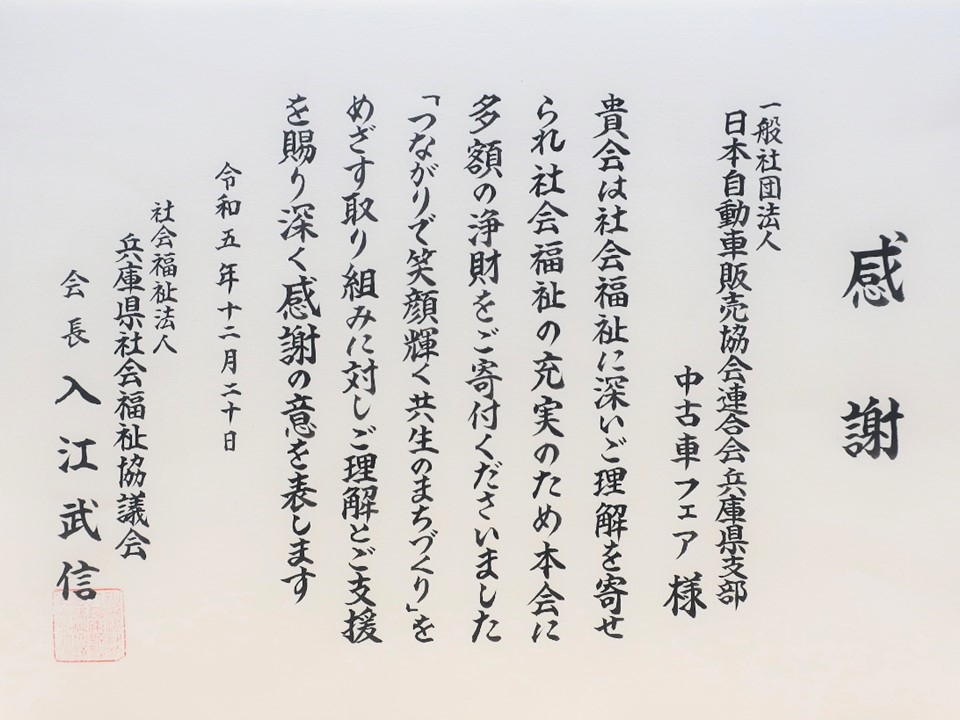 感謝
一般社団法人
日本自動車販売協会連合会兵庫県支部
中古車フェア 様
貴会は社会福祉に深いご理解を寄せ
られ社会福祉の充実のため本会に
多額の浄財をご寄付くださいました
「つながりで笑顔輝く共生のまちづくり」を
めざす取り組みに対しご理解とご支援
を賜り深く感謝の意を表します
令和五年十二月二十日
社会福祉法人
兵庫県社会福祉協議会
会長 入江武信